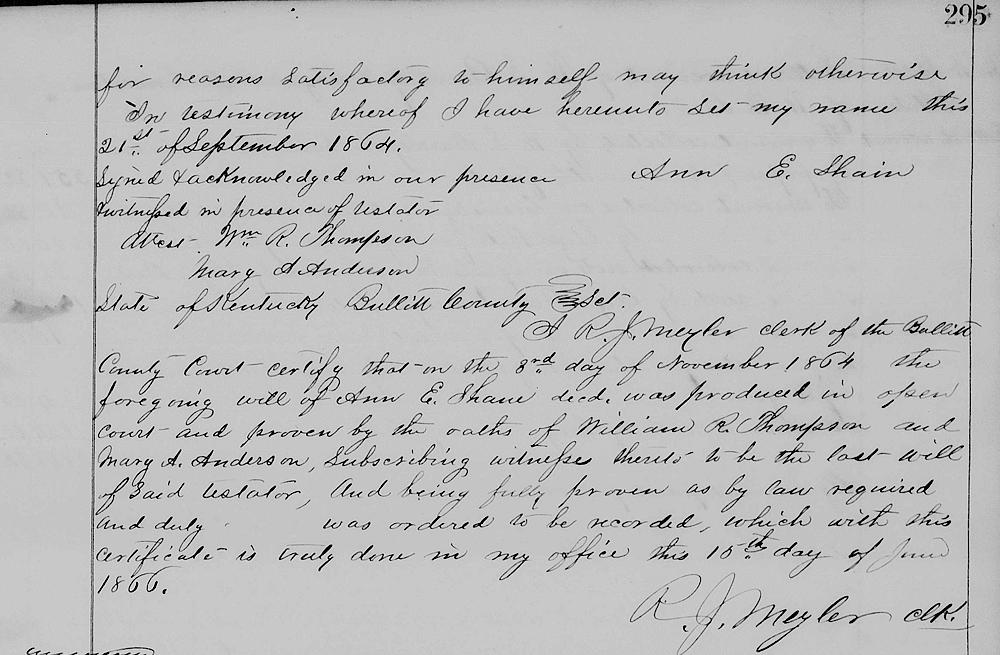 295
for reasons satisfactory to himself may think otherwise
In testimony whereof I have hereunto set my name this
21st of September 1864.
Signed & acknowledged in our presence Ann E. Shain
& witnessed in presence of testator
Attest Wm R. Thompson
Mary A Anderson
State of Kentucky Bullitt County Sct.
I R. J. Meyler clerk of the Bullitt
County Court certify that on the 3rd day of November 1864 the
foregoing will of Ann E. Shane decd. was produced in open
court and proven by the oaths of William R. Thompson and
Mary A. Anderson, Subscribing witnesses thereto to be the last will
of Said testator, And being fully proven as by law required
and duly was ordered to be recorded, which with this
certificate is truly done in my office this 15th day of June
1866.
R. J. Meyler clk.